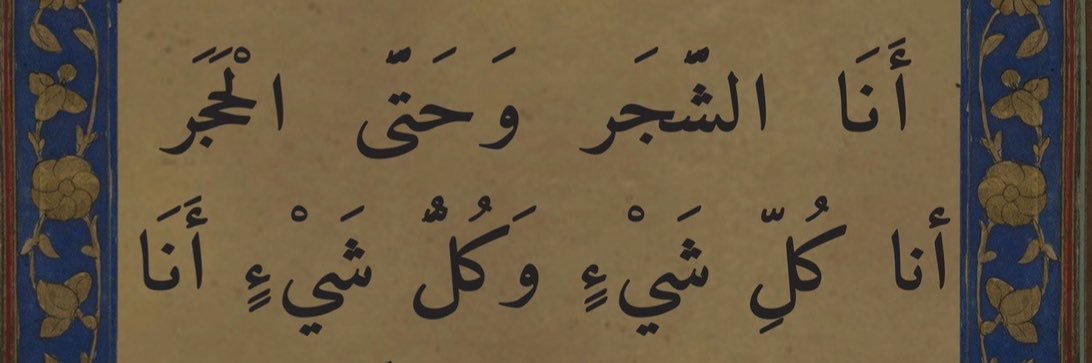 أَنَا الشَّجَر وَحَتَّى الْحَجَر
أنا كُلِّ شَيْءٍ وَكُلُّ شَيْءٍ أَنَا